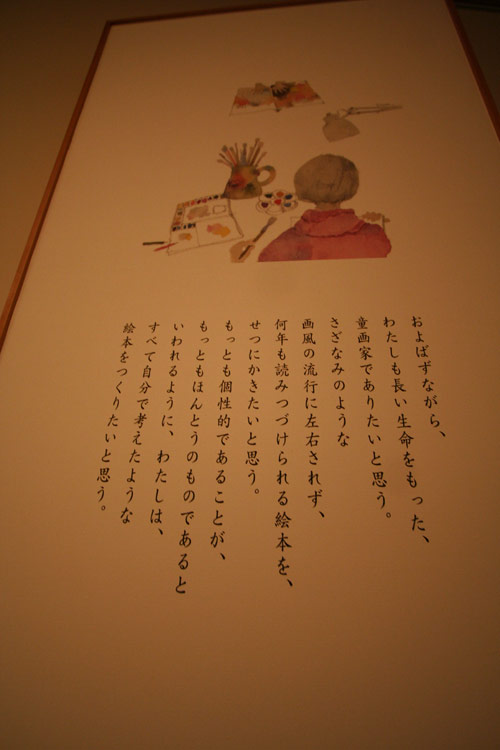 およばずながら、
わたしも長い生命をもった、
童画家でありたいと思う。
さざなみのような
画風の流行に左右されず、
何年も読みつづけられる絵本を、
せつにかきたいと思う。
もっとも個性的であることが、
もっともほんとうのものであると
いわれるように、わたしは、
すべて自分で考えたような
絵本をつくりたいと思う。